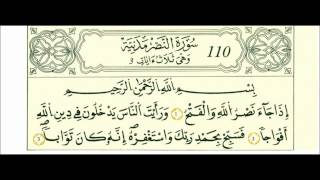 110 سُورَةُ النَّصْرِ مَدَنِيَّة
وَهِيَ ثَلَاثُ ءَايَاتٍ
بِسْمِ اللَّهِ الرَّحْمَٰنِ الرَّحِيمِ
إِذَا جَاءَ نَصْرُ اللَّهِ وَالْفَتْحُ وَرَأَيْتَ النَّاسَ يَدْخُلُونَ فِي دِينِ اللَّهِ
أَفْوَاجًا فَسَبِّحْ بِحَمْدِ رَبِّكَ وَاسْتَغْفِرْهُ إِنَّهُ كَانَ تَوَّابًا